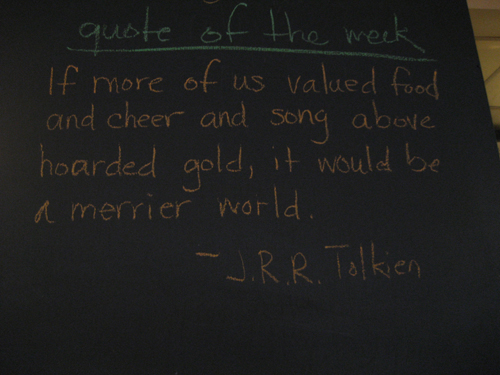 quote of the week
If more of us valued food
and cheer and song above
hoarded gold, it would be
a merrier world.
- J.R.R. Tolkien